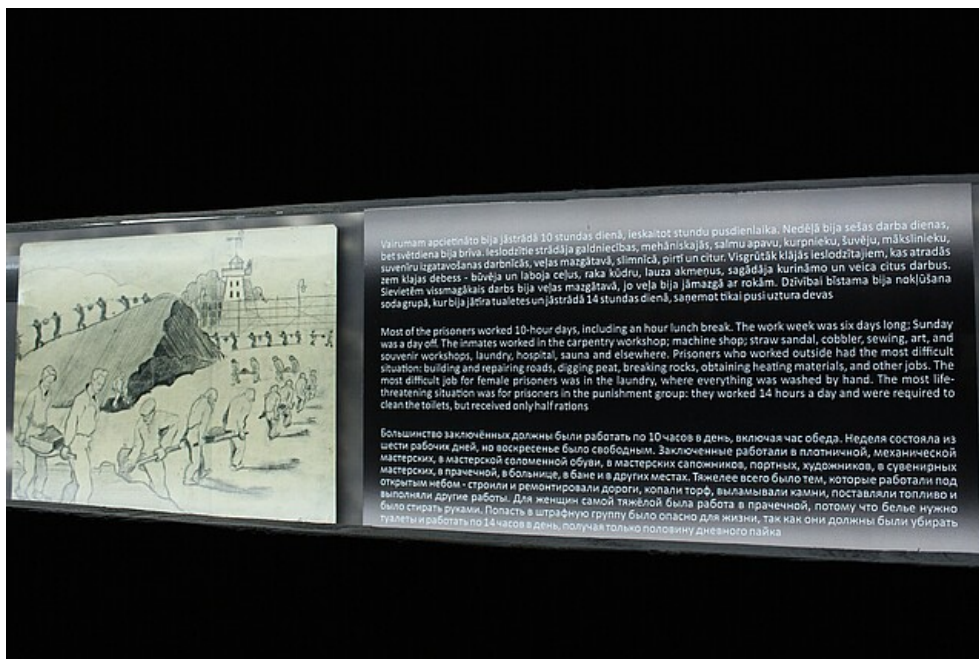 Vairumam apcietināto bija jāstrādā 10 stundas dienā, ieskaitot stundu pusdienlaika. Nedēļā bija sešas darba dienas,
bet svētdiena bija brīva. Ieslodzītie strādāja galdniecības, mehāniskajās, salmu apavu, kurpnieku, šuvēju, mākslinieku,
suvenīru izgatavošanas darbnīcās, veļas mazgātavā, slimnīcā, pirtī un citur. Visgrūtāk klājās ieslodzītajiem, kas atradās
zem klajas debess - būvēja un laboja ceļus, raka kūdru, lauza akmeņus, sagādāja kurināmo un veica citus darbus.
Sievietēm vissmagākais darbs bija veļas mazgātavā, jo veļa bija jāmazgā ar rokām. Dzīvībai bīstama bija nokļūšana
soda grupā, kur bija jātīra tualetes un jāstrādā 14 stundas dienā, saņemot tikai pusi uztura devas
Most of the prisoners worked 10-hour days, including an hour lunch break. The work week was six days long; Sunday
was a day off. The inmates worked in the carpentry workshop; machine shop; straw sandal, cobbler, sewing, art, and
souvenir workshops, laundry, hospital, sauna and elsewhere. Prisoners who worked outside had the most difficult
situation: building and repairing roads, digging peat, breaking rocks, obtaining heating materials, and other jobs. The
most difficult job for female prisoners was in the laundry, where everything was washed by hand. The most life-
threatening situation was for prisoners in the punishment group: they worked 14 hours a day and were required to
clean the toilets, but received only half rations
Большинство заключённых должны были работать по 10 часов в день, включая час обеда. Неделя состояла из
шести рабочих дней, но воскресенье было свободным. Заключенные работали в плотничной, механической
мастерских, в мастерской соломенной обуви, в мастерских сапожников, портных, художников, в сувенирных
мастерских, в прачечной, в больнице, в бане и в других местах. Тяжелее всего было тем, которые работали под
открытым небом - строили и ремонтировали дороги, копали торф, выламывали камни, поставляли топливо и
выполняли другие работы. Для женщин самой тяжёлой была работа в прачечной, потому что белье нужно
было стирать руками. Попасть в штрафную группу было опасно для жизни, так как они должны были убирать
туалеты и работать по 14 часов в день, получая только половину дневного пайка